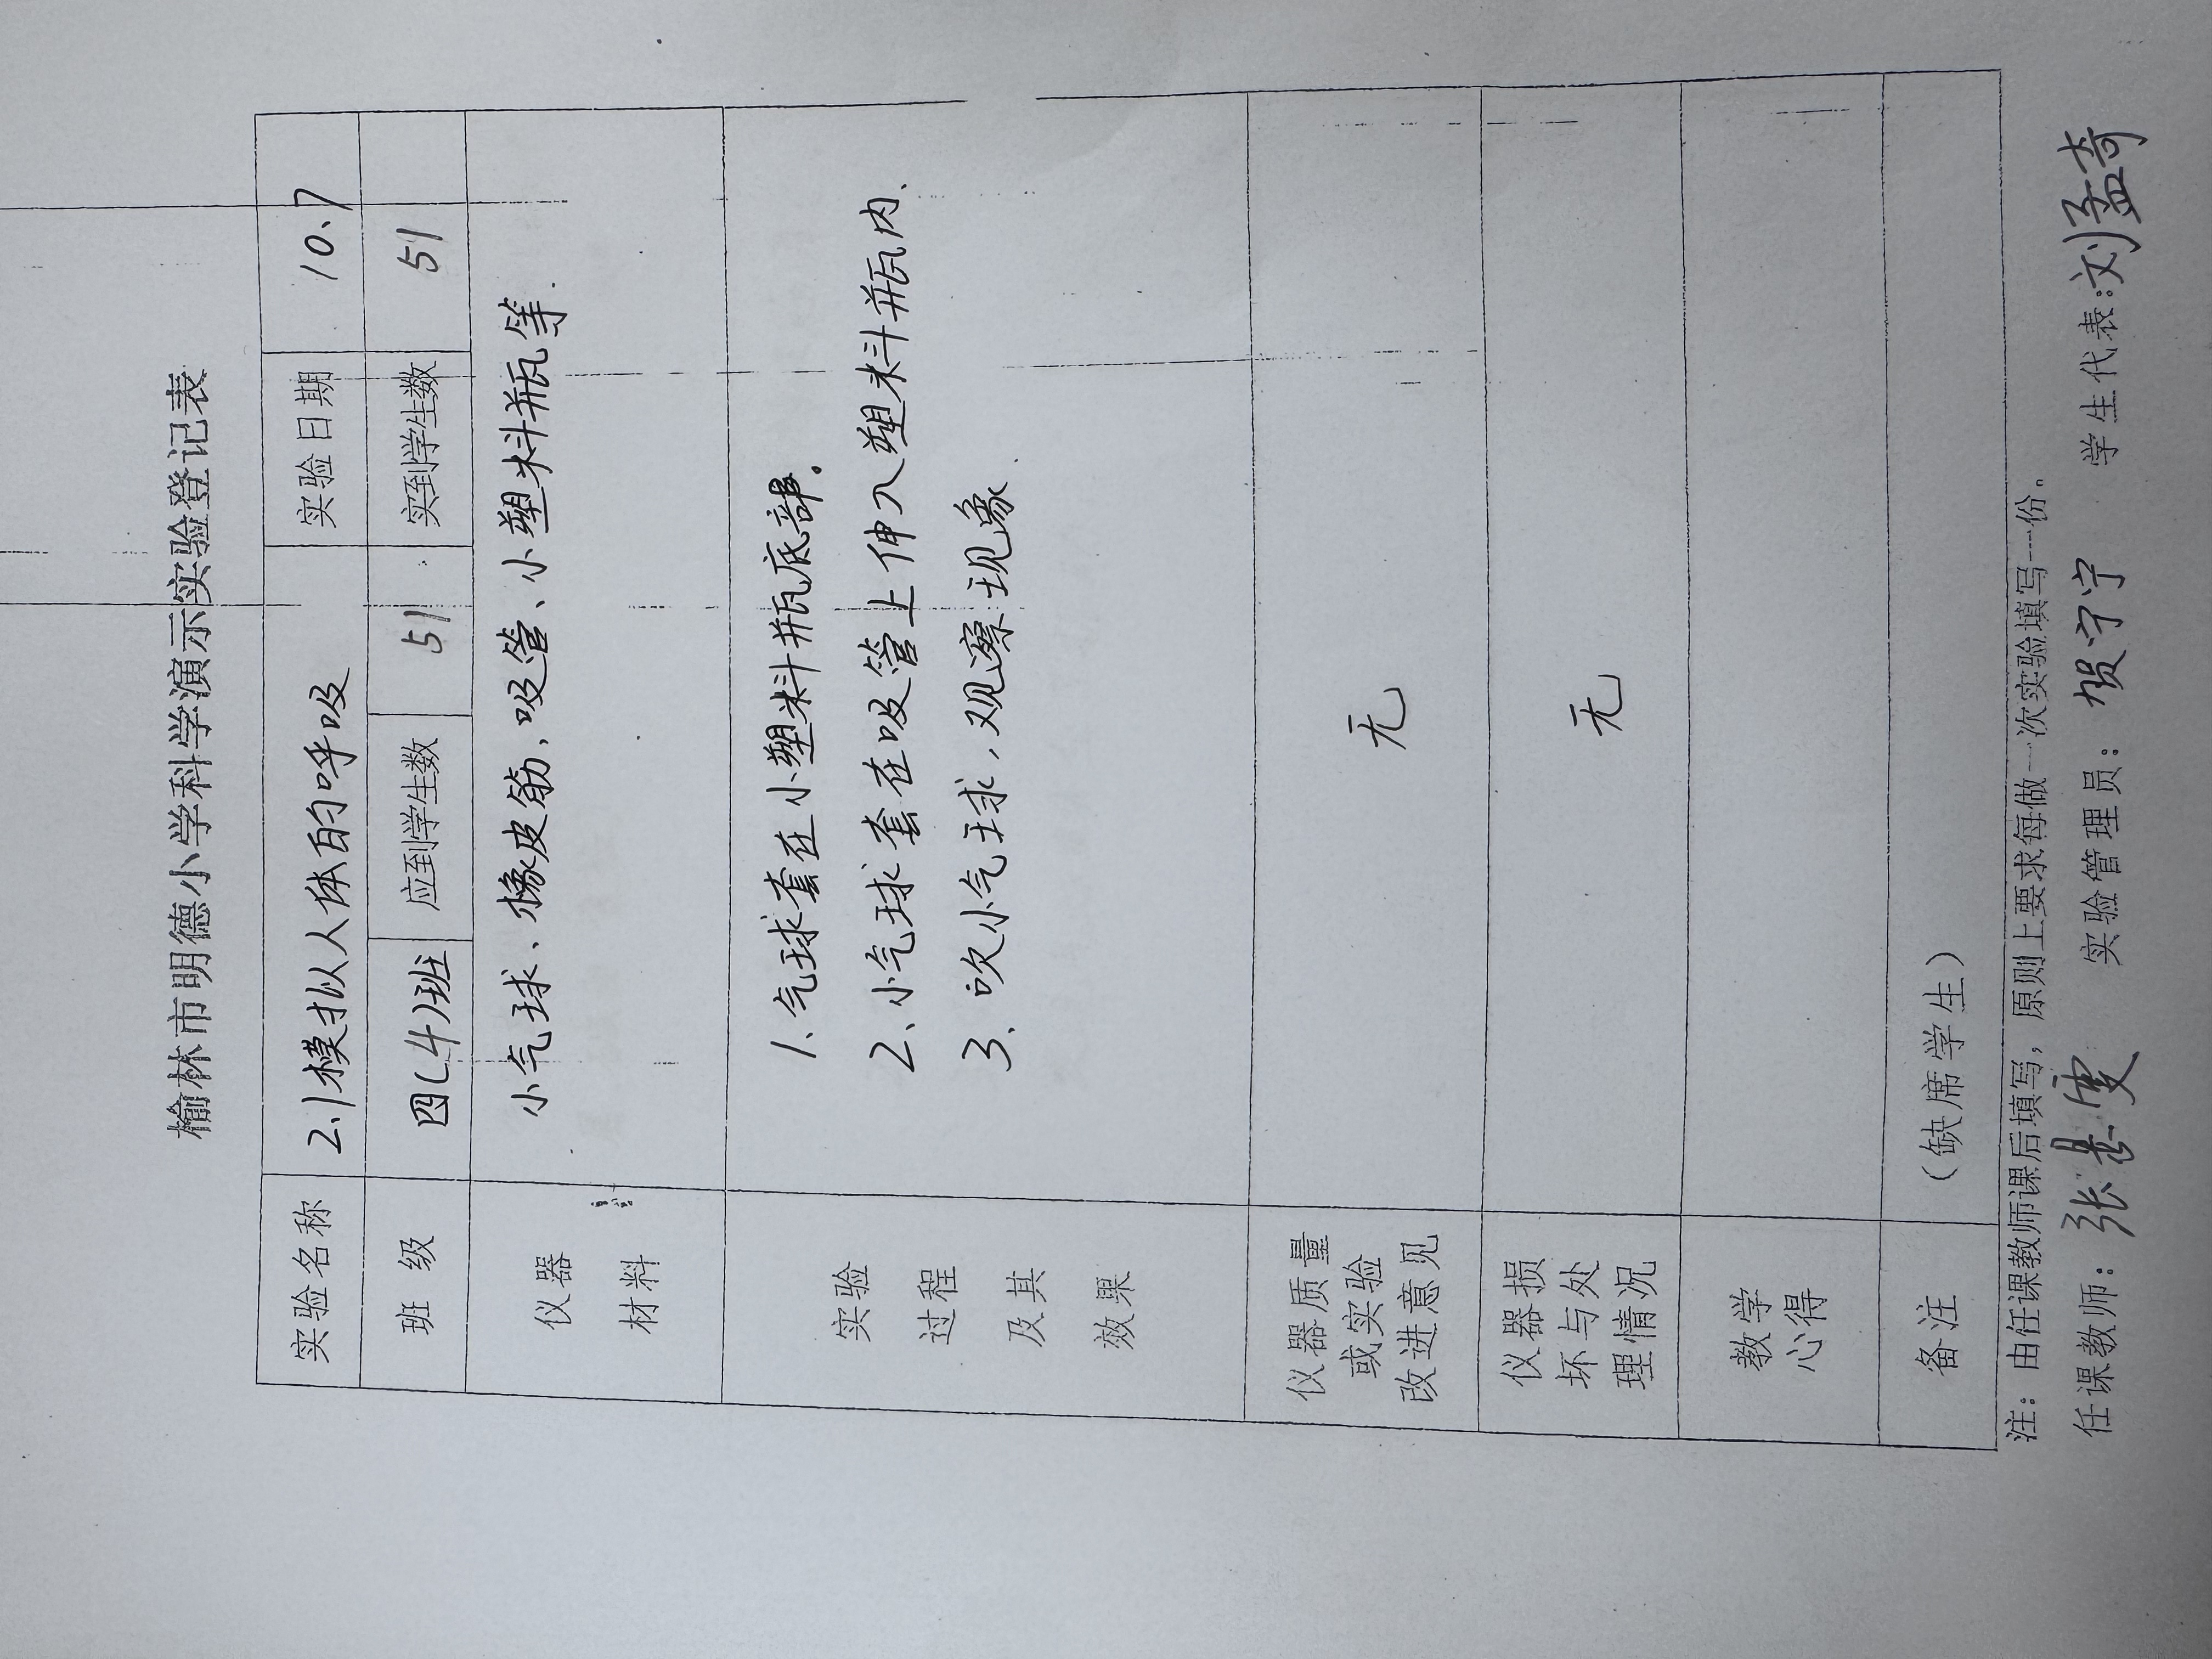 榆林市明德小学科学演示实验登记表
实验名称 2.1模拟人体的呼吸 实验日期 10.7
班 级 四(4)班 应到学生数 51 实到学生数 51
仪器
材料
小气球、橡皮筋、吸管、小塑料瓶等.
实验
过程
及其
效果
1、气球套在小塑料瓶底部.
2、小气球套在吸管上伸入塑料瓶内、
3、吹小气球，观察现象.
仪器质量
或实验
改进意见
无
仪器损
坏与处
理情况
无
教学
心得
备注 （缺席学生）
注：由任课教师课后填写，原则上要求每做一次实验填写一份。
任课教师：张 雯 实验管理员：贺宁宁 学生代表:刘孟奇